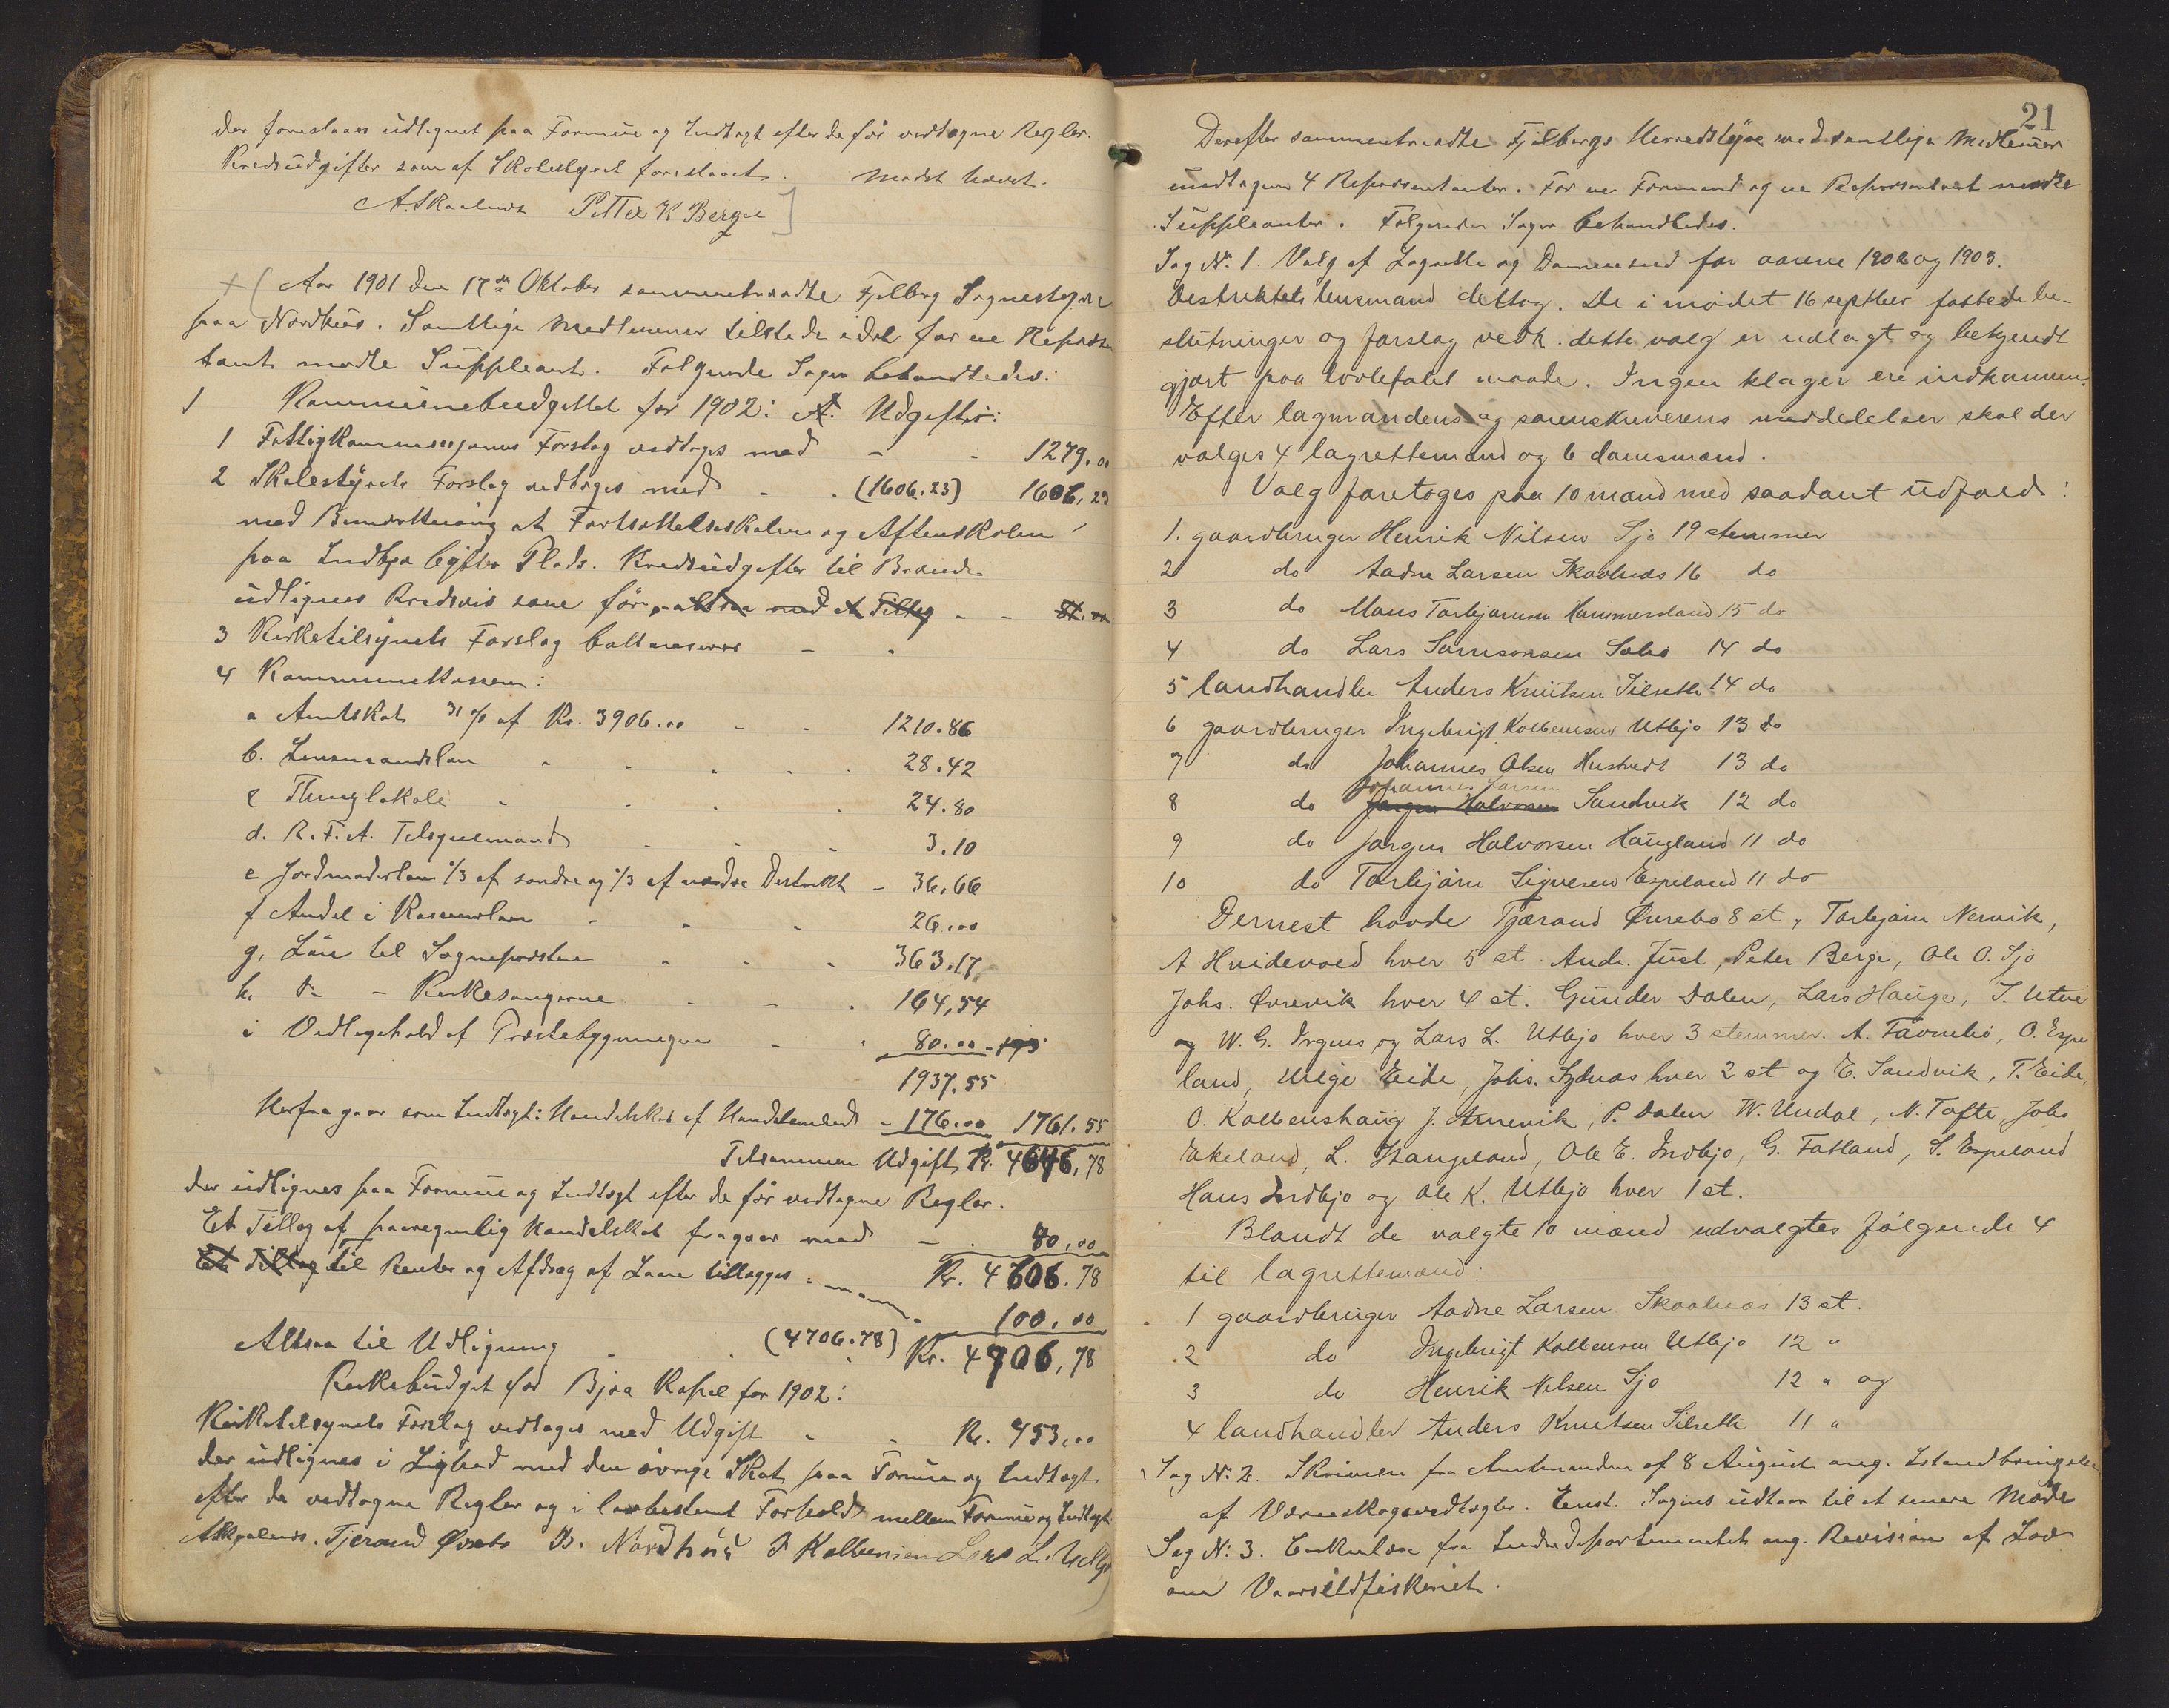 der foreslaaes udlignet paa Formue og Indtægt efter de før vedtagne Regler.
Kredsudgifter som af Skolestyret foreslaaet. Mødet hævet.
A. Skaalnes Petter K Berge
Aar 1901 den 17de Oktober sammentraadte Fjelberg Sognestyre
paa Nordhus. Samtlige Medlemmer tilstede idet for en Repræsen
tant mødte Suppleant. Følgende Sager behandledes:
1 Kommunebudgettet for 1902: A. Udgifter:
1 Fattigkommissjonens Forslag vedtages med - - 1279.00
2 Skolestyrets Forslag vedtages med - . (1606.23) 1606,23
med Bemærkning at Fortsættelsesskolen og Aftenskolen
paa Indbjo bytter Plads. Kredsudgifter til Brænde
udlignes kredsvis som før, altsaa med et Tillæg - - 87.00
3 Kirketilsynets Forslag - -
4 Kommunekassen:
a Amtskat 31 % af Kr. 3906.00 - - 1210.86
b. Lensmandsløn 28.42
c Thinglokale 24.80
d. R.F.A. Tilsynsmand 3.10
e Jordmoderløn 1/3 af søndre og 1/3 af nordre Distrikt - 36.66
f Andel i Kasserløn 26.00
g. Løn til Sognepresten 363.17
h. Do - Kirkesangerne 164,54
i Vedligehold af Præstebygningen 80.00
1937.55
Herfra gaar som Indtægt: Handelskat af Handelsmænd - 176.00 1761.55
Tilsammen Udgift Kr. 4646,78
der udlignes paa Formue og Indtægt efter de før vedtagne Regler.
Et Tillæg af paaregnelig Handelskat fragaar med - 40.00
Et Tillæg til Renter og Afdrag af Laan tillægges - Kr. 4606.78
100.00
Altsaa til Udligning (4706.78) Kr. 4706,78
Kirkebudget for Bjoa Kapel for 1902:
Kirketilsynets Forslag vedtages med Udgift - - Kr. 453.00
der udlignes i Lighed med den øvrige Skat paa Formue og Indtægt
efter de vedtagne Regler og i lovbestemt Forhold mellem Formue og Indtægt
A Skaalnes. Tjerand Øvrebo B. Nordhus I Kolbensen Lars L. Utbjo
21
Derefter sammentraadte Fjelbergs Herredstyre med samtlige Medlemer
undtagen 4 Repræsentanter. For en Formand og en Repræsentant mødte
Suppleanter. Følgende Sager behandledes.
Sag No. 1. Valg af Lagrette og Domsmænd for aarene 1902 og 1903.
Destriktets lensmand deltog. De i mødet 16 septber fattede be-
slutninger og forslag vedk. dette valg er udlagt og bekjendt
gjort paa lovbefalet maade. Ingen klager ere indkommen.
Efter lagmandens og sorenskriverens meddelelser skal der
vælges 4 lagrettemænd og 6 domsmænd.
Valg foretoges paa 10 mænd med saadant udfald:
1. gaardbruger Henrik Nilsen Sjo 19 stemmer
2 do Aadne Larsen Skaalnæs 16 do
3 do Mons Torbjørnsen Hammersland 15 do
4 do Lars Samsonsen Sæbø 14 do
5 landhandler Anders Knutsen Silseth 14 do
6 gaardbruger Ingebrigt Kolbensen Utbjo 13 do
7 do Johannes Olsen Hustvedt 13 do
Johannes Larsen
8 do Jørgen Halvorsen Sandvik 12 do
9 do Jørgen Halvorsen Haugland 11 do
10 do Torbjørn Sigvesen Espeland 11 do
Dernest havde Tjærand Øvrebø 8 st, Torbjørn Nervik,
A Hvidevold hver 5 st. Andr. Juul, Peter Berge, Ole O. Sjo
Johs. Øvrevik hver 4 st. Gunder Dalen, Lars Hauge, I. Utne
og W. G. Irgens og Lars L. Utbjo hver 3 stemmer. A. Favnebø, O. Espe
land, Helge Eide, Johs. Sydnæs hver 2 st og E. Sandvik, T. Eide,
O. Kolbenshaug J. Arnevik, P. Dalen W. Undal, N. Tofte, Johs
Ekeland, L. Stangeland, Ole E. Indbjo, G. Fatland, S. Espeland
Hans Indbjo og Ole K. Utbjo hver 1 st.
Blandt de valgte 10 mænd udvalgtes følgende 4
til lagrettemænd:
1 gaardbruger Aadne Larsen Skaalnæs 13 st.
2 do Ingebrigt Kolbensen Utbjo 12 "
3 do Henrik Nilsen Sjo 12 " og
4 landhandler Anders Knutsen Silseth 11 "
Sag No: 2. Skrivelse fra Amtmanden af 8 August ang. Istandbringelse
af Værneskogsvedtægter. Enst. Sagens udtaar til et senere Møde
Sag No: 3. Cirkulære fra Indredepartementet ang. Revision af Lov
om Vaarsildfiskeriet.